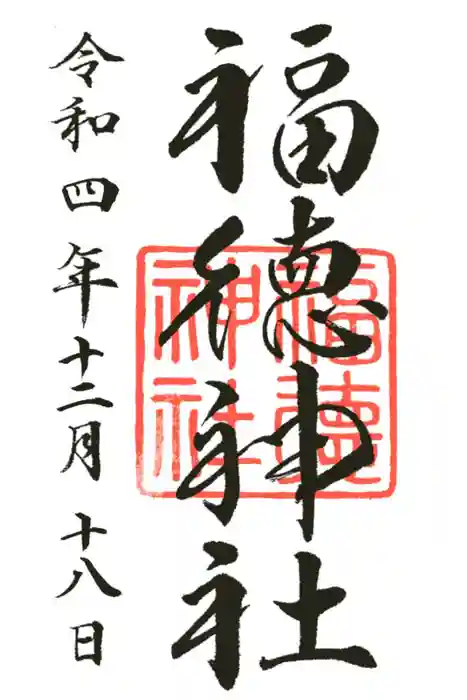 福徳神社
福徳神社
令和四年十二月十八日